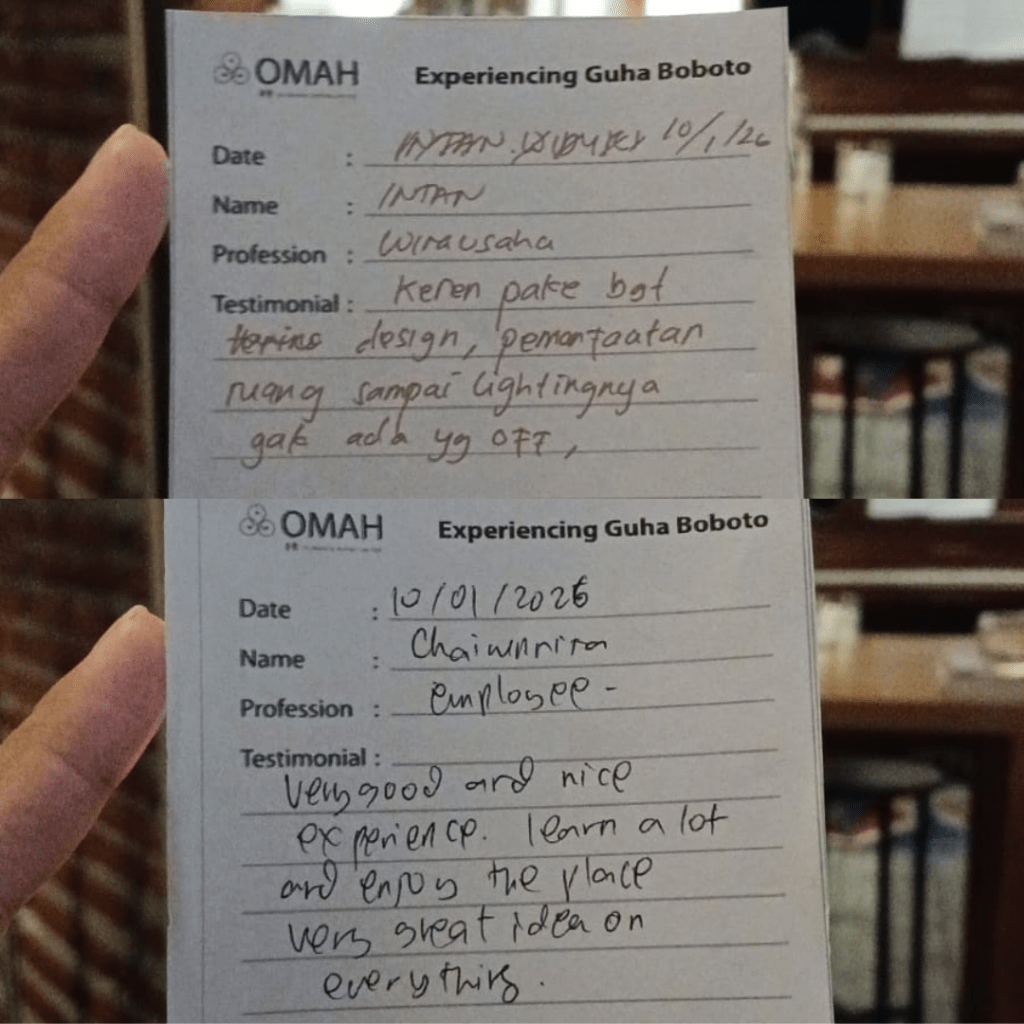 OMAH
Experiencing Guha Boboto
Date : INTAN 10/1/26
Name : INTAN
Profession : Wirausaha
Testimonial : Keren pake bgt
design, pemanfaatan
ruang sampai lightingnya
gak ada yg OFF,
OMAH
Experiencing Guha Boboto
Date : 10/01/2026
Name :
Profession : employee -
Testimonial :
Very good and nice
experience. learn a lot
and enjoy the place
very great idea on
everything.